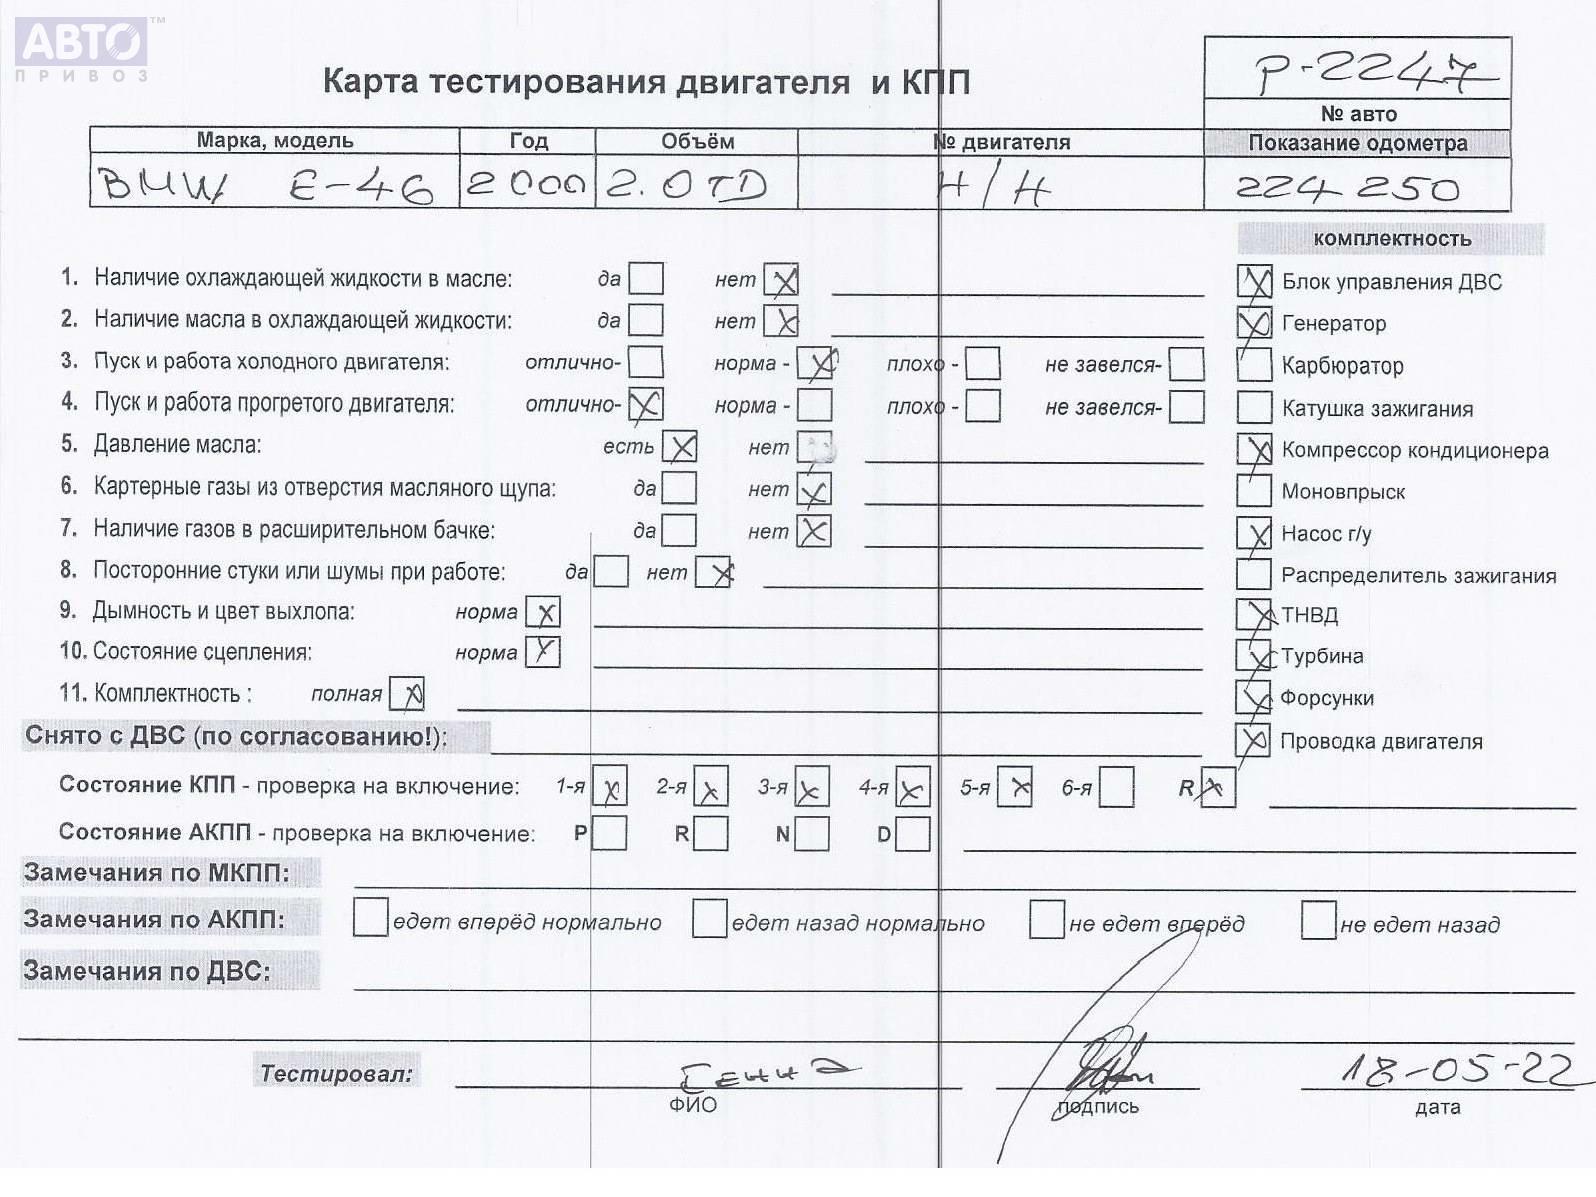 АВТО™
ПРИВОЗ
Карта тестирования двигателя и КПП
P-2247
№ авто
Марка, модель Год Объём № двигателя Показание одометра
BMW E-46 2000 2.0TD Н/Н 224250
комплектность
1. Наличие охлаждающей жидкости в масле: да нет X
Блок управления ДВС
2. Наличие масла в охлаждающей жидкости: да нет X
Генератор
3. Пуск и работа холодного двигателя: отлично- норма - X плохо - не завелся-
Карбюратор
4. Пуск и работа прогретого двигателя: отлично- X норма - плохо - не завелся-
Катушка зажигания
5. Давление масла: есть X нет
Компрессор кондиционера
6. Картерные газы из отверстия масляного щупа: да нет X
Моновпрыск
7. Наличие газов в расширительном бачке: да нет X
Насос г/у
8. Посторонние стуки или шумы при работе: да нет X
Распределитель зажигания
9. Дымность и цвет выхлопа: норма X
ТНВД
10. Состояние сцепления: норма X
Турбина
11. Комплектность : полная X
Форсунки
Снято с ДВС (по согласованию!):
Проводка двигателя
Состояние КПП - проверка на включение: 1-я X 2-я X 3-я X 4-я X 5-я X 6-я R X
Состояние АКПП - проверка на включение: P R N D
Замечания по МКПП:
Замечания по АКПП: едет вперёд нормально едет назад нормально не едет вперёд не едет назад
Замечания по ДВС:
Тестировал: 18-05-22
ФИО подпись дата